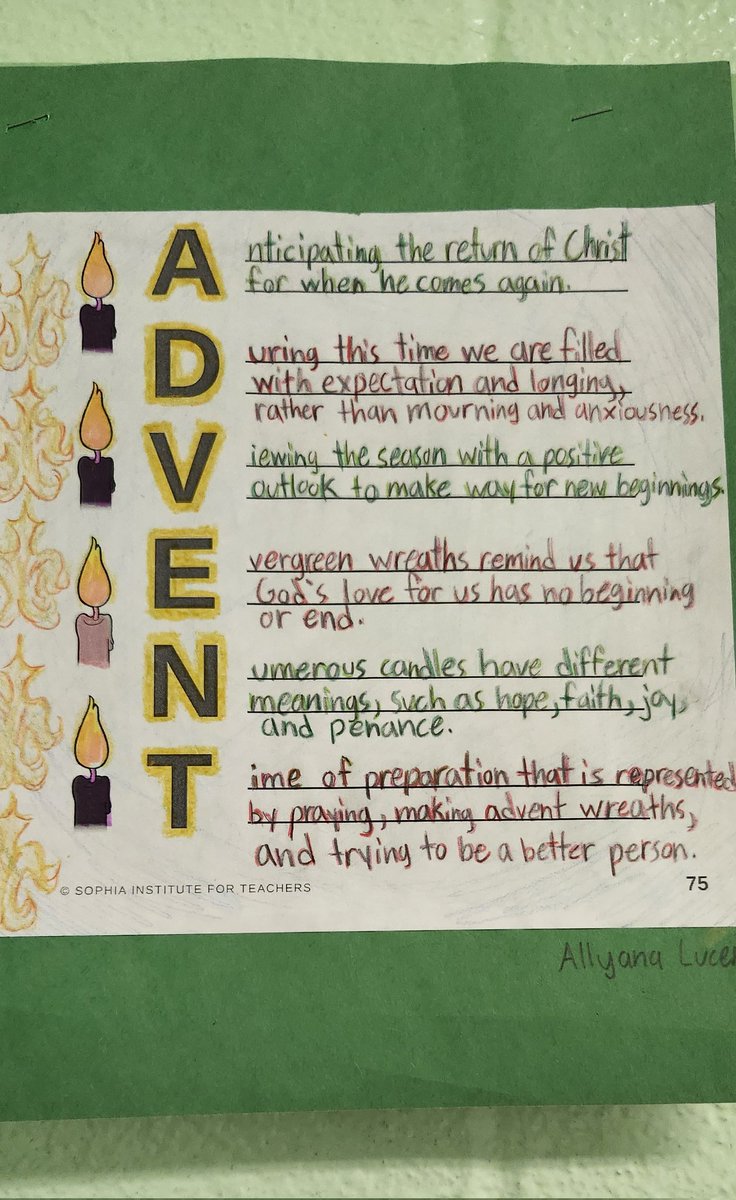 Anticipating the return of Christ
for when he comes again.
During this time we are filled
with expectation and longing,
rather than mourning and anxiousness.
Viewing the season with a positive
outlook to make way for new beginnings.
Evergreen wreaths remind us that
God's love for us has no beginning
or end.
Numerous candles have different
meanings, such as hope, faith, joy,
and penance.
Time of preparation that is represented
by praying, making advent wreaths,
and trying to be a better person.
© SOPHIA INSTITUTE FOR TEACHERS 75
Allyana